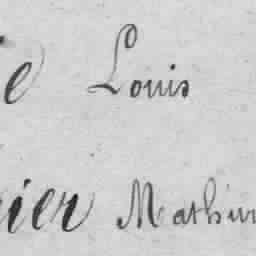 e Louis
ier Mathur